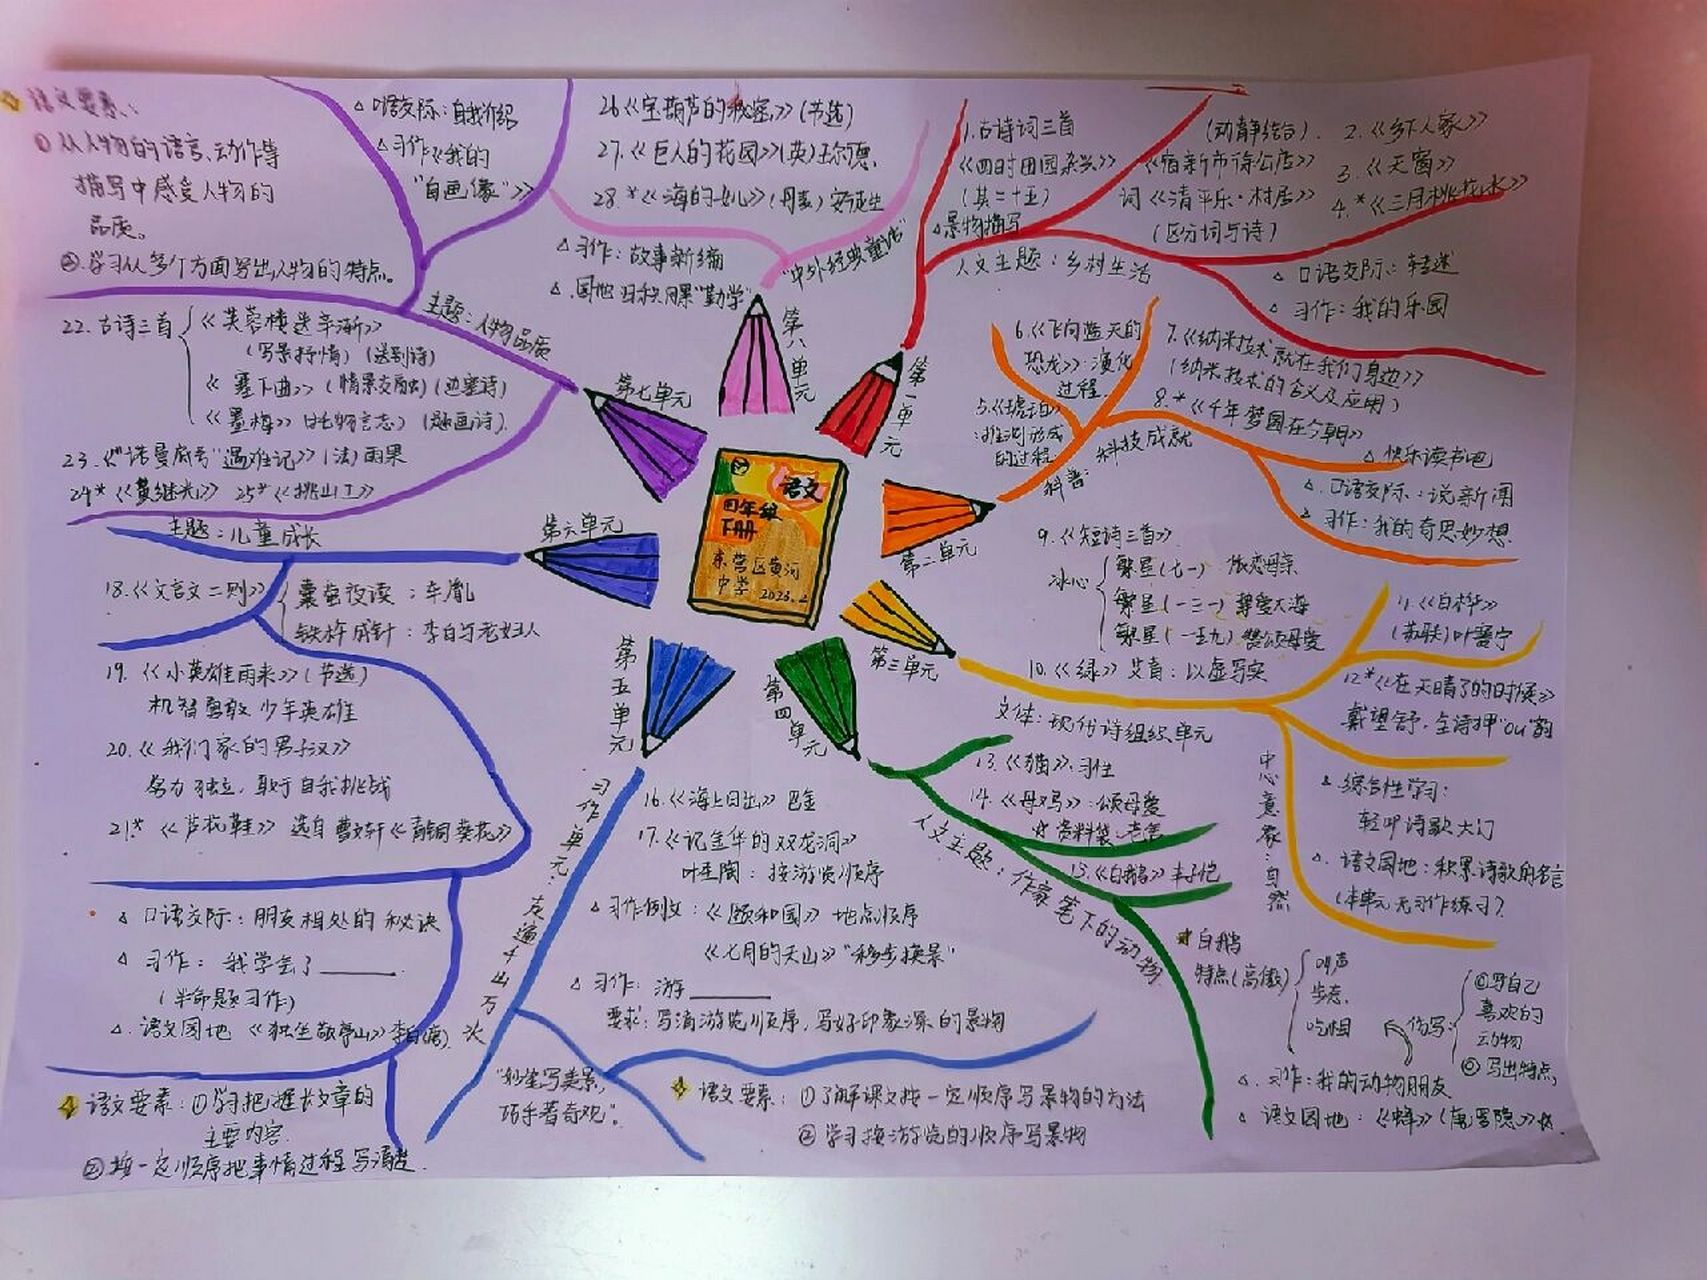 语文
四年级
下册
东营区黄河
中学 2023.2
第一单元
1.古诗词三首
《四时田园杂兴》
(其二十五)
(动静结合).
《宿新市徐公店》
词《清平乐·村居》
(区分词与诗)
2.《乡下人家》
3.《天窗》
4.*《三月桃花水》
△景物描写
人文主题:乡村生活
△ 口语交际:转述
△ 习作:我的乐园
第二单元
科普:科技成就
5.《琥珀》
:推测形成
的过程
6.《飞向蓝天的
恐龙》:演化
过程.
7.《纳米技术就在我们身边》
(纳米技术的含义及应用)
8.*《千年梦圆在今朝》
△ 快乐读书吧
△.口语交际:说新闻
△ 习作:我的奇思妙想
第三单元
9.《短诗三首》
冰心
繁星(七一) 依恋母亲
繁星(一三一)
繁星(一五九) 赞颂母爱
10.《绿》艾青:以虚写实
文体:现代诗组织单元
11.《白桦》
(苏联)叶赛宁
12*《在天晴了的时候》
戴望舒.全诗押"ou"韵
中心意象:自然
△.综合性学习:
轻叩诗歌大门
△.语文园地:积累诗歌的名言
(本单元无习作练习).
第四单元
人文主题:作家笔下的动物
13.《猫》:习性
14.《母鸡》:颂母爱
☆资料袋:老舍
15.《白鹅》丰子恺
★白鹅
特点(高傲)
叫声
步态.
吃相
仿写:
①写自己
喜欢的
动物
②写出特点
△.习作:我的动物朋友
△ 语文园地:《蜂》(唐罗隐)
第五单元
习作单元:走遍千山万水
16.《海上日出》巴金
17.《记金华的双龙洞》
叶圣陶:按游览顺序
△习作例文:《颐和园》地点顺序
《七月的天山》"移步换景"
△ 习作:游______
要求:写清游览顺序,写好印象深的景物
"妙笔写美景,
巧手著奇观".
语文要素:①了解课文按一定顺序写景物的方法
②学习按游览的顺序写景物
第六单元
主题:儿童成长
18.《文言文二则》
囊萤夜读:车胤
铁杵成针:李白与老妇人
19.《小英雄雨来》(节选)
机智勇敢 少年英雄
20.《我们家的男子汉》
努力独立,敢于自我挑战
21.*《芦花鞋》选自曹文轩《青铜葵花》
△ 口语交际:朋友相处的秘诀
△ 习作:我学会了______.
(半命题习作)
△.语文园地《独坐敬亭山》李白(唐)
语文要素:①学习把握长文章的
主要内容.
②按一定顺序把事情过程写清楚.
第七单元
主题:人物品质
22.古诗三首
《芙蓉楼送辛渐》
(写景抒情)(送别诗)
《塞下曲》(情景交融)(边塞诗)
《墨梅》(托物言志)(题画诗).
23.《"诺曼底号"遇难记》(法)雨果
24*《黄继光》 25*《挑山工》
△口语交际:自我介绍
△习作《我的
"自画像"》
语文要素:
①从人物的语言、动作等
描写中感受人物的
品质。
②.学习从多个方面写出人物的特点.
第八单元
"中外经典童话"
26《宝葫芦的秘密》(节选)
27.《巨人的花园》(英)王尔德.
28.*《海的女儿》(丹麦)安徒生
△习作:故事新编
△.园地 日积月累"勤学"